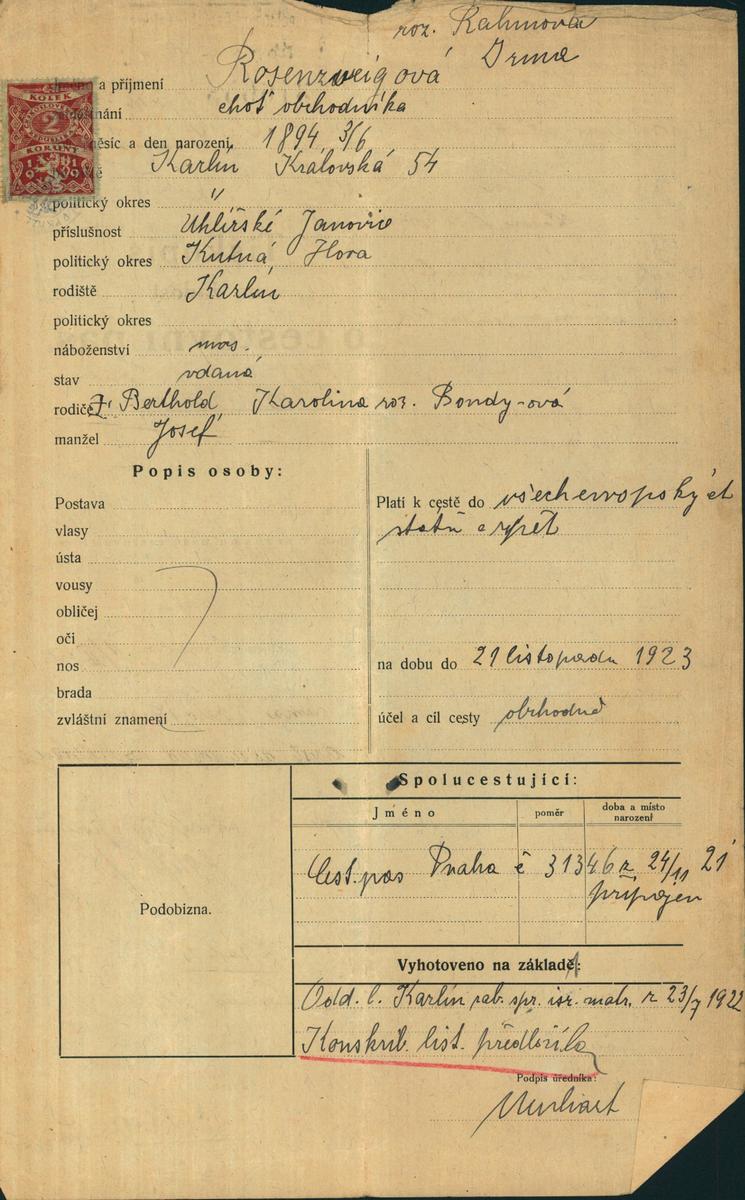 roz. Kahnová
Irma
a příjmení Rosenzweigová
choť obchodníka
měsíc a den narození 1894 3/6
KOLEK
2
KORUNY
1919
Karlín Královská 54
politický okres "
příslušnost Uhlířské Janovice
politický okres Kutná Hora
rodiště Karlín
politický okres
náboženství mos.
stav vdaná
rodiče Berthold Karolina roz. Bondy-ová
manžel Josef
Popis osoby:
Postava
vlasy
ústa
vousy
obličej
oči
nos
brada
zvláštní znamení
Platí k cestě do všech evropských
států a zpět
na dobu do 21 listopadu 1923
účel a cíl cesty obchodně
Podobizna.
Spolucestující:
Jméno poměr doba a místo narození
Cest. pas Praha č 31346 z 24/11 21
připojen
Vyhotoveno na základě:
Odd. l. Karlín rab. spr. isr. matr. z 23/7 1922
Konskrib. list. předložila
Podpis úředníka: